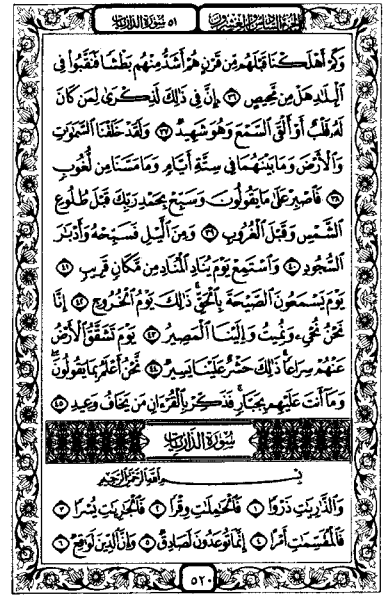 الجزء السادس والعشرون ٥١ سورة الذاريات
وَكَمْ أَهْلَكْنَا قَبْلَهُم مِّن قَرْنٍ هُمْ أَشَدُّ مِنْهُم بَطْشًا فَنَقَّبُوا۟ فِى
ٱلْبِلَٰدِ هَلْ مِن مَّحِيصٍ ٣٦ إِنَّ فِى ذَٰلِكَ لَذِكْرَىٰ لِمَن كَانَ
لَهُۥ قَلْبٌ أَوْ أَلْقَى ٱلسَّمْعَ وَهُوَ شَهِيدٌ ٣٧ وَلَقَدْ خَلَقْنَا ٱلسَّمَٰوَٰتِ
وَٱلْأَرْضَ وَمَا بَيْنَهُمَا فِى سِتَّةِ أَيَّامٍ وَمَا مَسَّنَا مِن لُّغُوبٍ
٣٨ فَٱصْبِرْ عَلَىٰ مَا يَقُولُونَ وَسَبِّحْ بِحَمْدِ رَبِّكَ قَبْلَ طُلُوعِ
ٱلشَّمْسِ وَقَبْلَ ٱلْغُرُوبِ ٣٩ وَمِنَ ٱلَّيْلِ فَسَبِّحْهُ وَأَدْبَٰرَ
ٱلسُّجُودِ ٤٠ وَٱسْتَمِعْ يَوْمَ يُنَادِ ٱلْمُنَادِ مِن مَّكَانٍ قَرِيبٍ ٤١
يَوْمَ يَسْمَعُونَ ٱلصَّيْحَةَ بِٱلْحَقِّ ذَٰلِكَ يَوْمُ ٱلْخُرُوجِ ٤٢ إِنَّا
نَحْنُ نُحْىِۦ وَنُمِيتُ وَإِلَيْنَا ٱلْمَصِيرُ ٤٣ يَوْمَ تَشَقَّقُ ٱلْأَرْضُ
عَنْهُمْ سِرَاعًا ذَٰلِكَ حَشْرٌ عَلَيْنَا يَسِيرٌ ٤٤ نَّحْنُ أَعْلَمُ بِمَا يَقُولُونَ
وَمَآ أَنتَ عَلَيْهِم بِجَبَّارٍ فَذَكِّرْ بِٱلْقُرْءَانِ مَن يَخَافُ وَعِيدِ ٤٥
سورة الذاريات
بسم الله الرحمن الرحيم
وَٱلذَّٰرِيَٰتِ ذَرْوًا ١ فَٱلْحَٰمِلَٰتِ وِقْرًا ٢ فَٱلْجَٰرِيَٰتِ يُسْرًا ٣
فَٱلْمُقَسِّمَٰتِ أَمْرًا ٤ إِنَّمَا تُوعَدُونَ لَصَادِقٌ ٥ وَإِنَّ ٱلدِّينَ لَوَٰقِعٌ ٦
٥٢٠